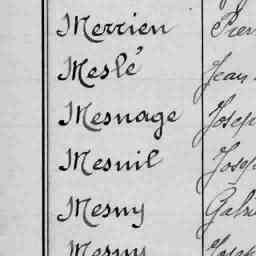 Merrien Pier
Meslé Jean
Mesnage Josep
Mesnil Josep
Mesny Gabri
Mesny Josep